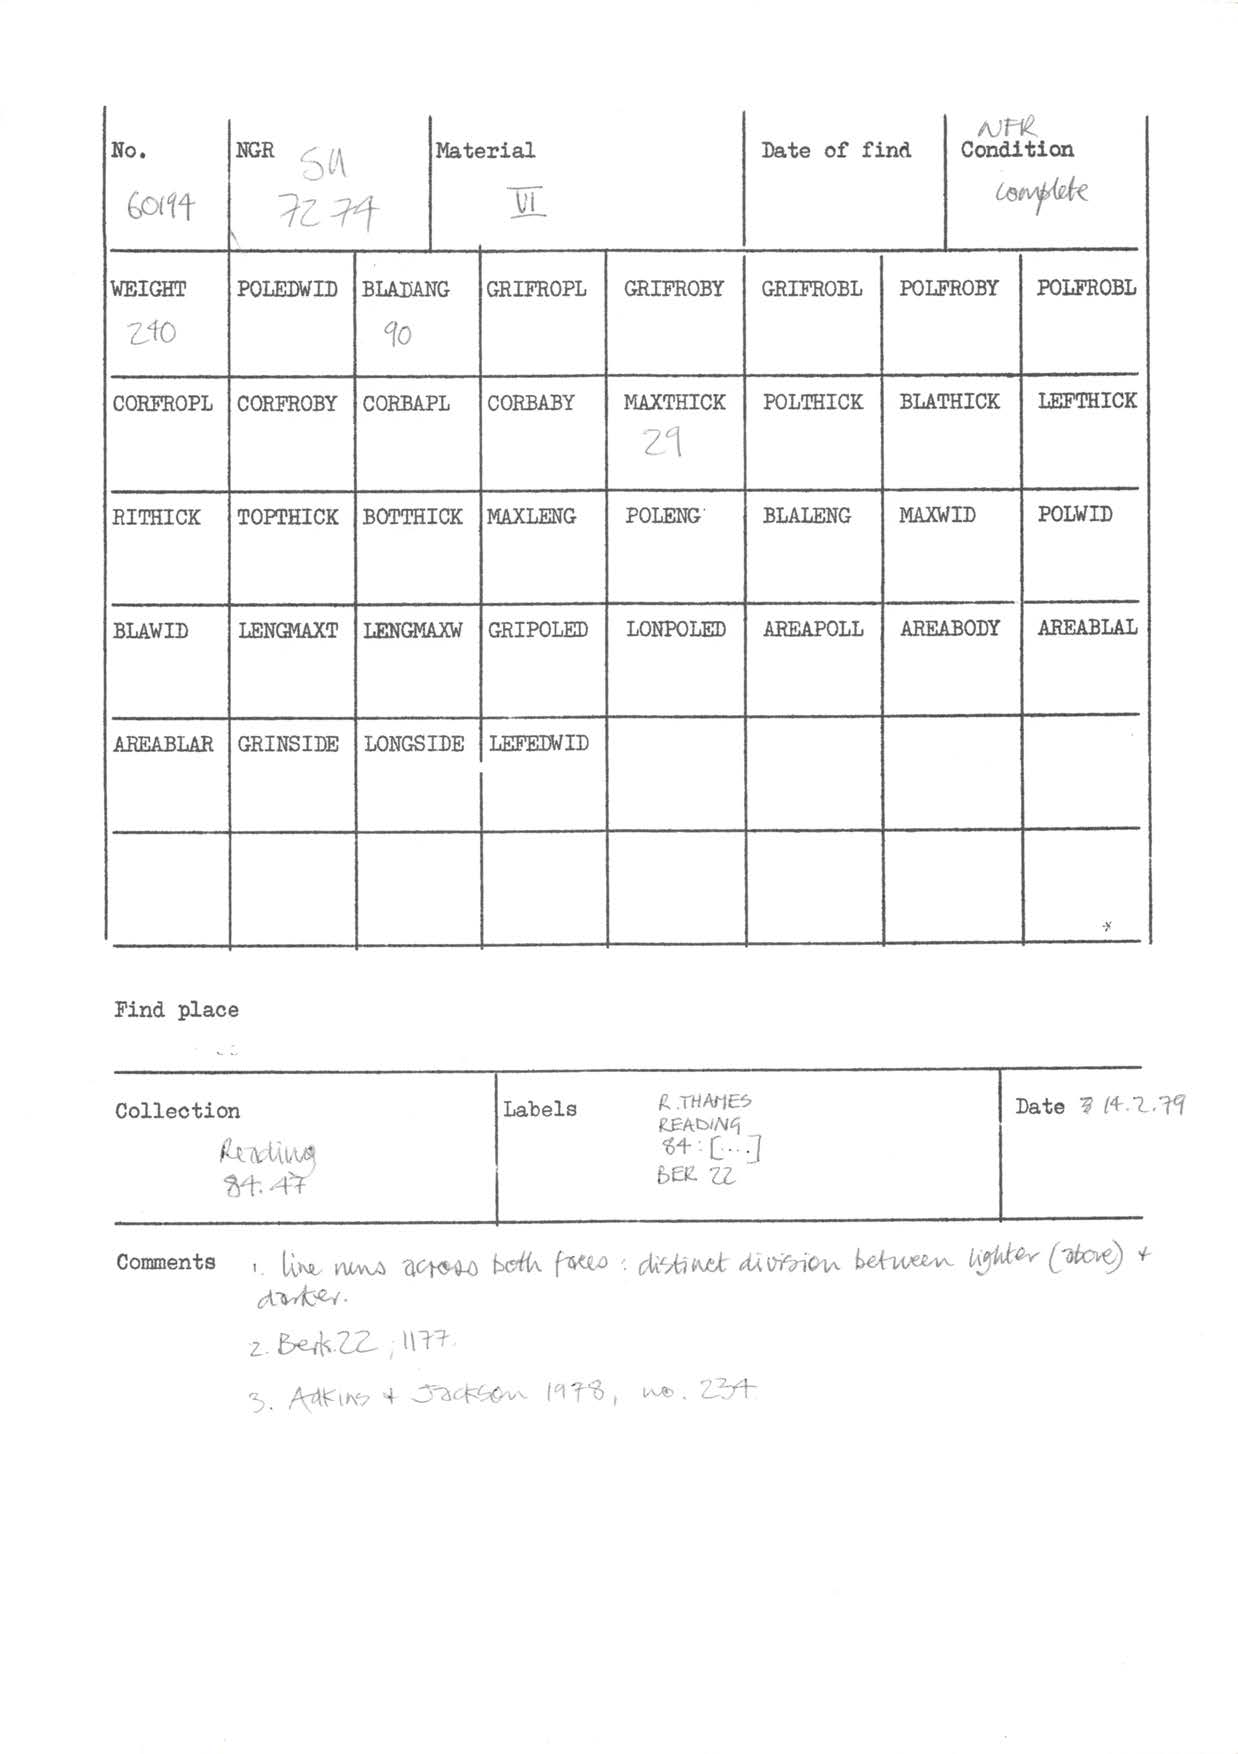 NFR
No. NGR SU Material Date of find Condition
60194 72 74 VI complete
WEIGHT POLEDWID BLADANG GRIFROPL GRIFROBY GRIFROBL POLFROBY POLFROBL
240 90
CORFROPL CORFROBY CORBAPL CORBABY MAXTHICK POLTHICK BLATHICK LEFTHICK
29
RITHICK TOPTHICK BOTTHICK MAXLENG POLENG BLALENG MAXWID POLWID
BLAWID LENGMAXT LENGMAXW GRIPOLED LONPOLED AREAPOLL AREABODY AREABLAL
AREABLAR GRINSIDE LONGSIDE LEFEDWID
Find place
Collection
Reading
84.47
Labels R.THAMES
READING
84:[....]
BER 22
Date 14.2.79
Comments 1. line runs across both faces : distinct division between lighter (above) +
darker.
2. Berks.22 ; 1177.
3. Adkins + Jackson 1978, no. 234